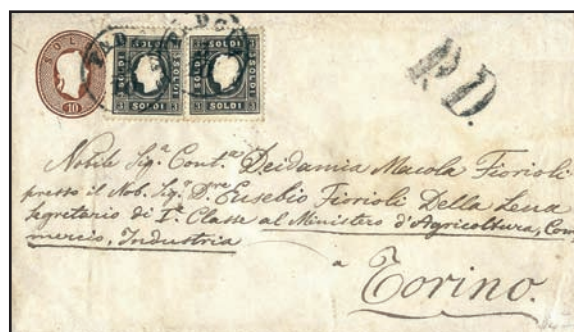 SOLDI
10
3 SOLDI 3
3 SOLDI 3
P.D.
Nobile Sig.ª Cont.ª Deidamia Macola Fiorioli
presso il Nob. Sig.r D.re Eusebio Fiorioli Della Lena
Segretario di Iª Classe al Ministero d'Agricoltura, Com
mercio, Industria
a
Torino.